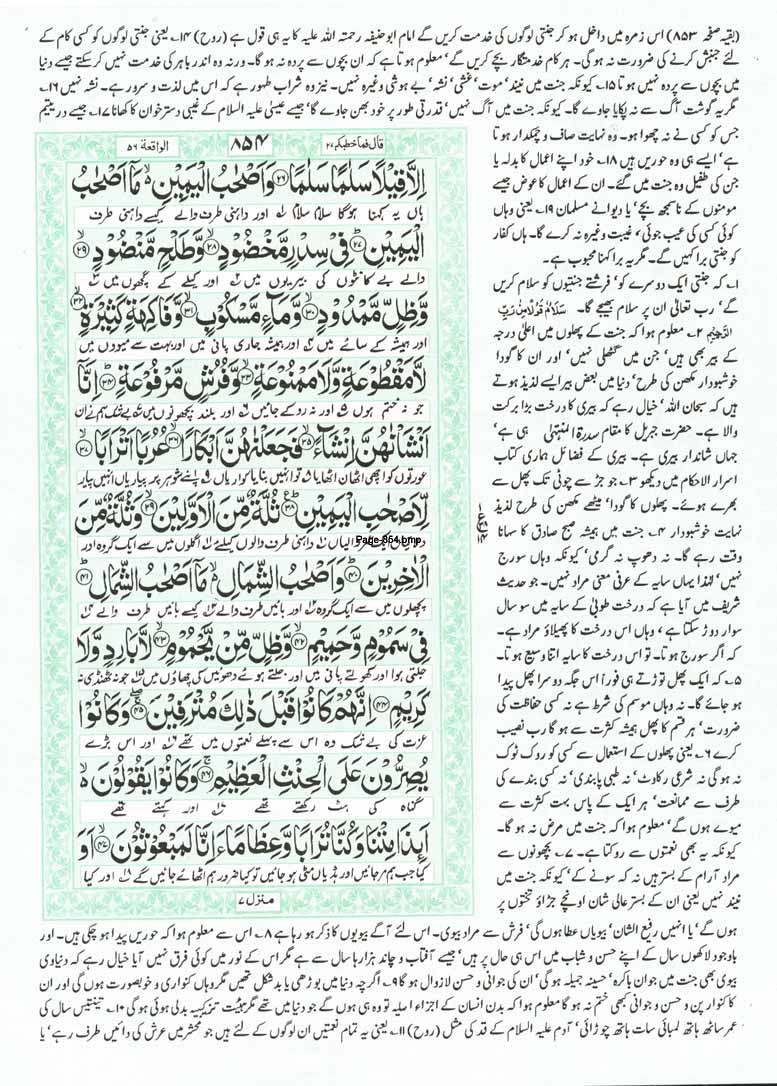 (بقیہ صفحہ ۸۵۳) اس زمرہ میں داخل ہو کر جنتی لوگوں کی خدمت کریں گے امام ابو حنیفہ رحمتہ اللہ علیہ کا یہ ہی قول ہے (روح) ۱۴۔ یعنی جنتی لوگوں کو کسی کام کے
لئے جنبش کرنے کی ضرورت نہ ہوگی۔ ہر کام خدمتگار بچے کریں گے۔ معلوم ہوتا ہے کہ ان بچوں سے پردہ نہ ہو گا۔ ورنہ وہ اندر باہر کی خدمت نہیں کر سکتے جیسے دنیا
میں بچوں سے پردہ نہیں ہوتا ۱۵۔ کیونکہ جنت میں نیند' موت' غشی' نشہ' بے ہوشی وغیرہ نہیں۔ نیز وہ شراب طہور ہے کہ اس میں لذت و سرور ہے۔ نشہ نہیں ۱۶۔
مگر یہ گوشت آگ سے نہ پکایا جاوے گا۔ کیونکہ جنت میں آگ نہیں' قدرتی طور پر خود بھن جاوے گا' جیسے عیسیٰ علیہ السلام کے غیبی دسترخوان کا کھانا ۱۷۔ جیسے در یتیم
جس کو کسی نے نہ چھوا ہو۔ وہ نہایت صاف و چمکدار ہوتا
ہے' ایسے ہی وہ حوریں ہیں ۱۸۔ خود اپنے اعمال کا بدلہ یا
جن کی طفیل وہ جنت میں گئے۔ ان کے اعمال کا عوض جیسے
مومنوں کے ناسمجھ بچے' یا دیوانے مسلمان ۱۹۔ یعنی وہاں
کوئی کسی کی عیب جوئی' غیبت وغیرہ نہ کرے گا۔ ہاں کفار
کو جنتی برا کہیں گے۔ مگر یہ برا کہنا محبوب ہے۔
۱۔ کہ جنتی ایک دوسرے کو' فرشتے جنتیوں کو سلام کریں
گے' رب تعالیٰ ان پر سلام بھیجے گا۔ سَلَامٌ قَوْلًا مِّنْ رَّبٍّ
الرَّحِيمِ ۲۔ معلوم ہوا کہ جنت کے پھلوں میں اعلیٰ درجہ
کے بیر بھی ہیں' جن میں گٹھلی نہیں' اور ان کا گودا
خوشبودار مکھن کی طرح' دنیا میں بعض بیر ایسے لذیذ ہوتے
ہیں کہ سبحان اللہ' خیال رہے کہ بیری کا درخت بڑا برکت
والا ہے۔ حضرت جبریل کا مقام سدرۃ المنتہیٰ ہی ہے'
جہاں شاندار بیری ہے۔ بیری کے فضائل ہماری کتاب
اسرار الاحکام میں دیکھو ۳۔ جو جڑ سے چوٹی تک پھل سے
بھرے ہوئے۔ پھلوں کا گودا' میٹھے مکھن کی طرح لذیذ
نہایت خوشبودار ۴۔ جنت میں ہمیشہ صبح صادق کا سہانا
وقت رہے گا۔ نہ دھوپ نہ گرمی' کیونکہ وہاں سورج
نہیں' لہٰذا یہاں سایہ کے عرفی معنی مراد نہیں۔ جو حدیث
شریف میں آیا ہے کہ درخت طوبیٰ کے سایہ میں سو سال
سوار دوڑ سکتا ہے' وہاں اس درخت کا پھیلاؤ مراد ہے۔
کہ اگر سورج ہوتا۔ تو اس درخت کا سایہ اتنا وسیع ہوتا۔
۵۔ کہ ایک پھل توڑتے ہی فوراً اس جگہ دوسرا پھل پیدا
ہو جائے گا۔ نہ وہاں موسم کی شرط ہے نہ کسی حفاظت کی
ضرورت' ہر قسم کا پھل ہمیشہ کثرت سے ہو گا رب نصیب
کرے ۶۔ یعنی پھلوں کے استعمال سے کسی کو روک ٹوک
نہ ہو گی نہ شرعی رکاوٹ' نہ طبی پابندی' نہ کسی بندے کی
طرف سے ممانعت' ہر ایک کے پاس بہت کثرت سے
میوے ہوں گے' معلوم ہوا کہ جنت میں مرض نہ ہو گا۔
کیونکہ یہ بھی نعمتوں سے روکتا ہے۔ ۷۔ بچھونوں سے
مراد آرام کے بستر ہیں نہ کہ سونے کے' کیونکہ جنت میں
نیند نہیں یعنی ان کے بستر عالی شان اونچے جڑاؤ تختوں پر
قال فما خطبکم ۲۷
۸۵۴
الواقعة ۵۶
اِلَّا قِيْلًا سَلٰمًا سَلٰمًا ﴿۲۶﴾ وَاَصْحٰبُ الْيَمِيْنِ ۙ مَاۤ اَصْحٰبُ
ہاں یہ کہنا ہوگا سلام سلام اور داہنی طرف والے کیسے داہنی طرف
الْيَمِيْنِ ﴿۲۷﴾ فِيْ سِدْرٍ مَّخْضُوْدٍ ﴿۲۸﴾ وَّطَلْحٍ مَّنْضُوْدٍ ﴿۲۹﴾
والے بے کانٹوں کی بیریوں میں اور کیلے کے گچھوں میں
وَّظِلٍّ مَّمْدُوْدٍ ﴿۳۰﴾ وَّمَآءٍ مَّسْكُوْبٍ ﴿۳۱﴾ وَّفَاكِهَةٍ كَثِيْرَةٍ ﴿۳۲﴾
اور ہمیشہ کے سائے میں اور ہمیشہ جاری پانی میں اور بہت سے میووں میں
لَّا مَقْطُوْعَةٍ وَّلَا مَمْنُوْعَةٍ ﴿۳۳﴾ وَّفُرُشٍ مَّرْفُوْعَةٍ ﴿۳۴﴾ اِنَّاۤ
جو نہ ختم ہوں اور نہ روکے جائیں اور بلند بچھونوں میں بے شک ہم نے ان
اَنْشَاْنٰهُنَّ اِنْشَآءً ﴿۳۵﴾ فَجَعَلْنٰهُنَّ اَبْكَارًا ﴿۳۶﴾ عُرُبًا اَتْرَابًا ﴿۳۷﴾
عورتوں کو اچھی اٹھان اٹھایا تو انہیں بنایا کنواریاں اپنے شوہر پر پیاریاں انہیں پیار
لِّاَصْحٰبِ الْيَمِيْنِ ﴿۳۸﴾ ثُلَّةٌ مِّنَ الْاَوَّلِيْنَ ﴿۳۹﴾ وَثُلَّةٌ مِّنَ
Page-864.bmp
داہنی طرف والوں کیلئے اگلوں میں سے ایک گروہ اور
الْاٰخِرِيْنَ ﴿۴۰﴾ وَاَصْحٰبُ الشِّمَالِ ۙ مَاۤ اَصْحٰبُ الشِّمَالِ ﴿۴۱﴾
پچھلوں میں سے ایک گروہ اور بائیں طرف والے کیسے بائیں طرف والے
فِيْ سَمُوْمٍ وَّحَمِيْمٍ ﴿۴۲﴾ وَّظِلٍّ مِّنْ يَّحْمُوْمٍ ﴿۴۳﴾ لَّا بَارِدٍ وَّلَا
جلتی ہوا اور کھولتے پانی میں اور جلتے ہوئے دھوئیں کی چھاؤں میں جو نہ ٹھنڈی نہ
كَرِيْمٍ ﴿۴۴﴾ اِنَّهُمْ كَانُوْا قَبْلَ ذٰلِكَ مُتْرَفِيْنَ ﴿۴۵﴾ وَكَانُوْا
عزت کی بے شک وہ اس سے پہلے نعمتوں میں تھے اور اس بڑے
يُصِرُّوْنَ عَلَى الْحِنْثِ الْعَظِيْمِ ﴿۴۶﴾ وَكَانُوْا يَقُوْلُوْنَ ۙ
گناہ کی ہٹ رکھتے تھے اور کہتے تھے
اَىِٕذَا مِتْنَا وَكُنَّا تُرَابًا وَّعِظَامًا ءَاِنَّا لَمَبْعُوْثُوْنَ ﴿۴۷﴾ اَوَ
کیا جب ہم مر جائیں اور ہڈیاں مٹی ہو جائیں تو کیا ضرور ہم اٹھائے جائیں گے اور کیا
منزل ۷
ہوں گے' یا انہیں رفیع الشان' بیویاں عطا ہوں گی' فرش سے مراد بیوی۔ اس لئے آگے بیویوں کا ذکر ہو رہا ہے ۸۔ اس سے معلوم ہوا کہ حوریں پیدا ہو چکی ہیں۔ اور
باوجود لاکھوں سال کے اپنے حسن و شباب میں اس ہی حال پر ہیں' جیسے آفتاب و چاند ہزارہا سال سے ہے مگر اس کے نور میں کوئی فرق نہیں آیا خیال رہے کہ دنیاوی
بیوی بھی جنت میں جوان باکرہ' حسینہ جمیلہ ہو گی' ان کی جوانی و حسن لازوال ہو گا ۹۔ اگرچہ دنیا میں بوڑھی یا بد شکل تھیں مگر وہاں کنواری و خوبصورت ہوں گی اور ان
کا کنوار پن و حسن و جوانی کبھی ختم نہ ہو گا معلوم ہوا کہ بدن انسان کے اجزاء اصلیہ تو وہ ہی ہوں گے جو دنیا میں تھے مگر ہیئت ترکیبیہ بدلی ہوئی ہو گی ۱۰۔ تینتیس سال کی
عمر ساٹھ ہاتھ لمبائی سات ہاتھ چوڑائی' آدم علیہ السلام کے قد کی مثل (روح) ۱۱۔ یعنی یہ تمام نعمتیں ان لوگوں کے لئے ہیں جو محشر میں عرش کی دائیں طرف رہے' یا